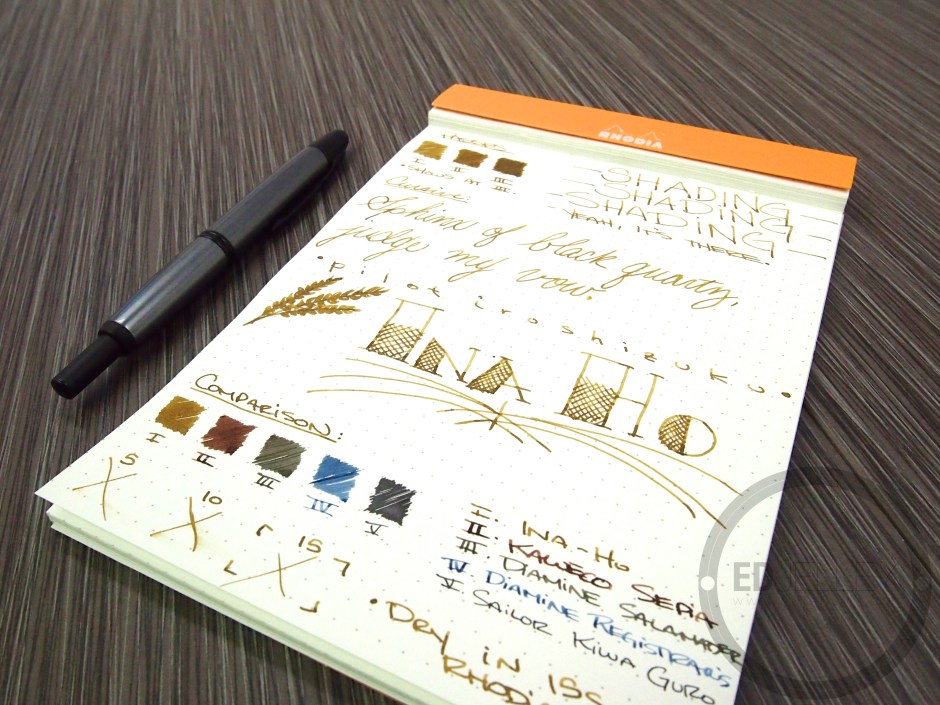 RHODIA
I II III
SHOWS AT III.
SHADING
SHADING
SHADING
YEAH, IT'S THERE.
Cursive:
Sphinx of black quartz,
judge my vow.
• pilot iroshizuku •
INA HO
COMPARISON:
I II III IV V
5
10
15
I. INA-HO
II. KAWECO SEPIA
III. DIAMINE SALAMANDER
IV. DIAMINE REGISTRAR'S
V. SAILOR KIWA GURO
• DRY IN 15s